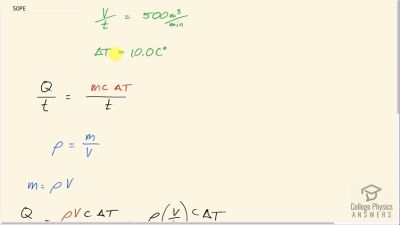 50PE
V/t = 500 m³/min
ΔT = 10.0 C°
Q/t = mcΔT/t
ρ = m/V
m = ρV
Q ρVcΔT ρ(V/t)cΔT
College Physics
ANSWERS